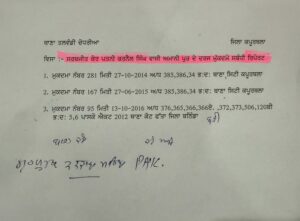 ਥਾਣਾ ਤਲਵੰਡੀ ਚੌਧਰੀਆ ਜਿਲਾ ਕਪੂਰਥਲਾ
ਵਿਸਾ :- ਸਰਬਜੀਤ ਕੌਰ ਪਤਨੀ ਕਰਨੈਲ ਸਿੰਘ ਵਾਸੀ ਅਮਾਨੀ ਪੁਰ ਦੇ ਦਰਜ ਮੁੱਕਦਮੇ ਸਬੰਧੀ ਰਿਪੋਰਟ
1. ਮੁਕਦਮਾ ਨੰਬਰ 281 ਮਿਤੀ 27-10-2014 ਅ/ਧ 385,386,34 ਭ:ਦ: ਥਾਣਾ ਸਿਟੀ ਕਪੂਰਥਲਾ
2. ਮੁਕਦਮਾ ਨੰਬਰ 167 ਮਿਤੀ 27-06-2015 ਅ/ਧ 385,386,34 ਭ:ਦ: ਥਾਣਾ ਸਿਟੀ ਕਪੂਰਥਲਾ
3. ਮੁਕਦਮਾ ਨੰਬਰ 95 ਮਿਤੀ 13-10-2016 ਅ/ਧ 376,365,363,366,366, ,372,373,506,120ਬੀ
ਭ:ਦ: 5,6 ਪਾਸਕੋ ਐਕਟ 2012 ਥਾਣਾ ਕੋਟ ਫੱਤਾ ਜਿਲਾ ਬਠਿੰਡਾ
PAK.